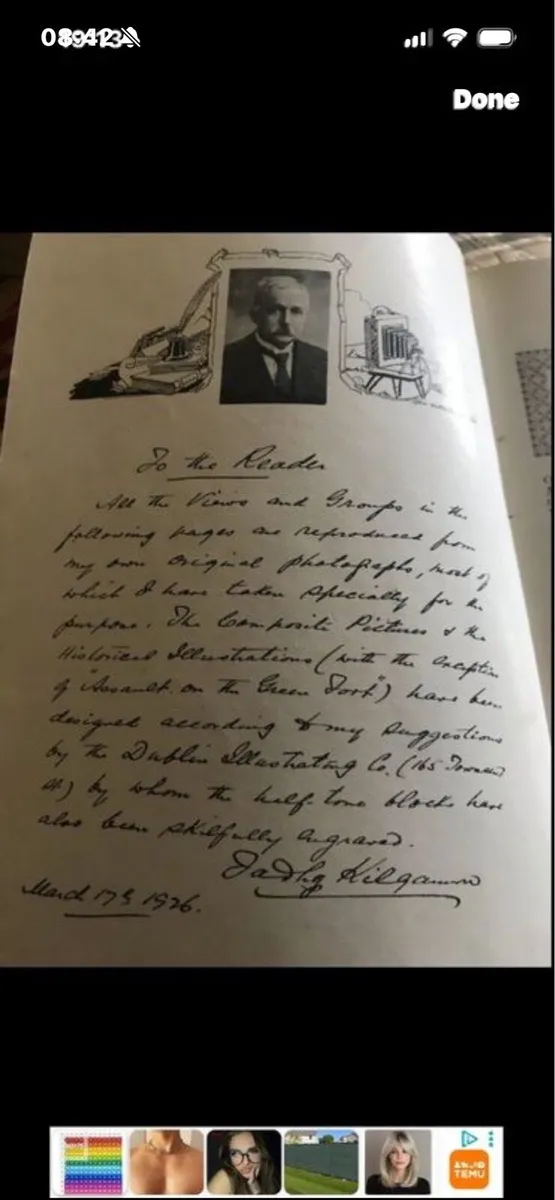 Done
To the Reader
All the Views and Groups in the
following pages are reproduced from
my own original photographs, most of
which I have taken specially for the
purpose. The Composite Pictures & the
Historical Illustrations (with the exception
of "Assault on the Green Fort") have been
designed according to my suggestions
by the Dublin Illustrating Co. (165
St.) by whom the half-tone blocks have
also been skilfully engraved.
Tadhg Kilgannon
March 17th 1926.
TEMU